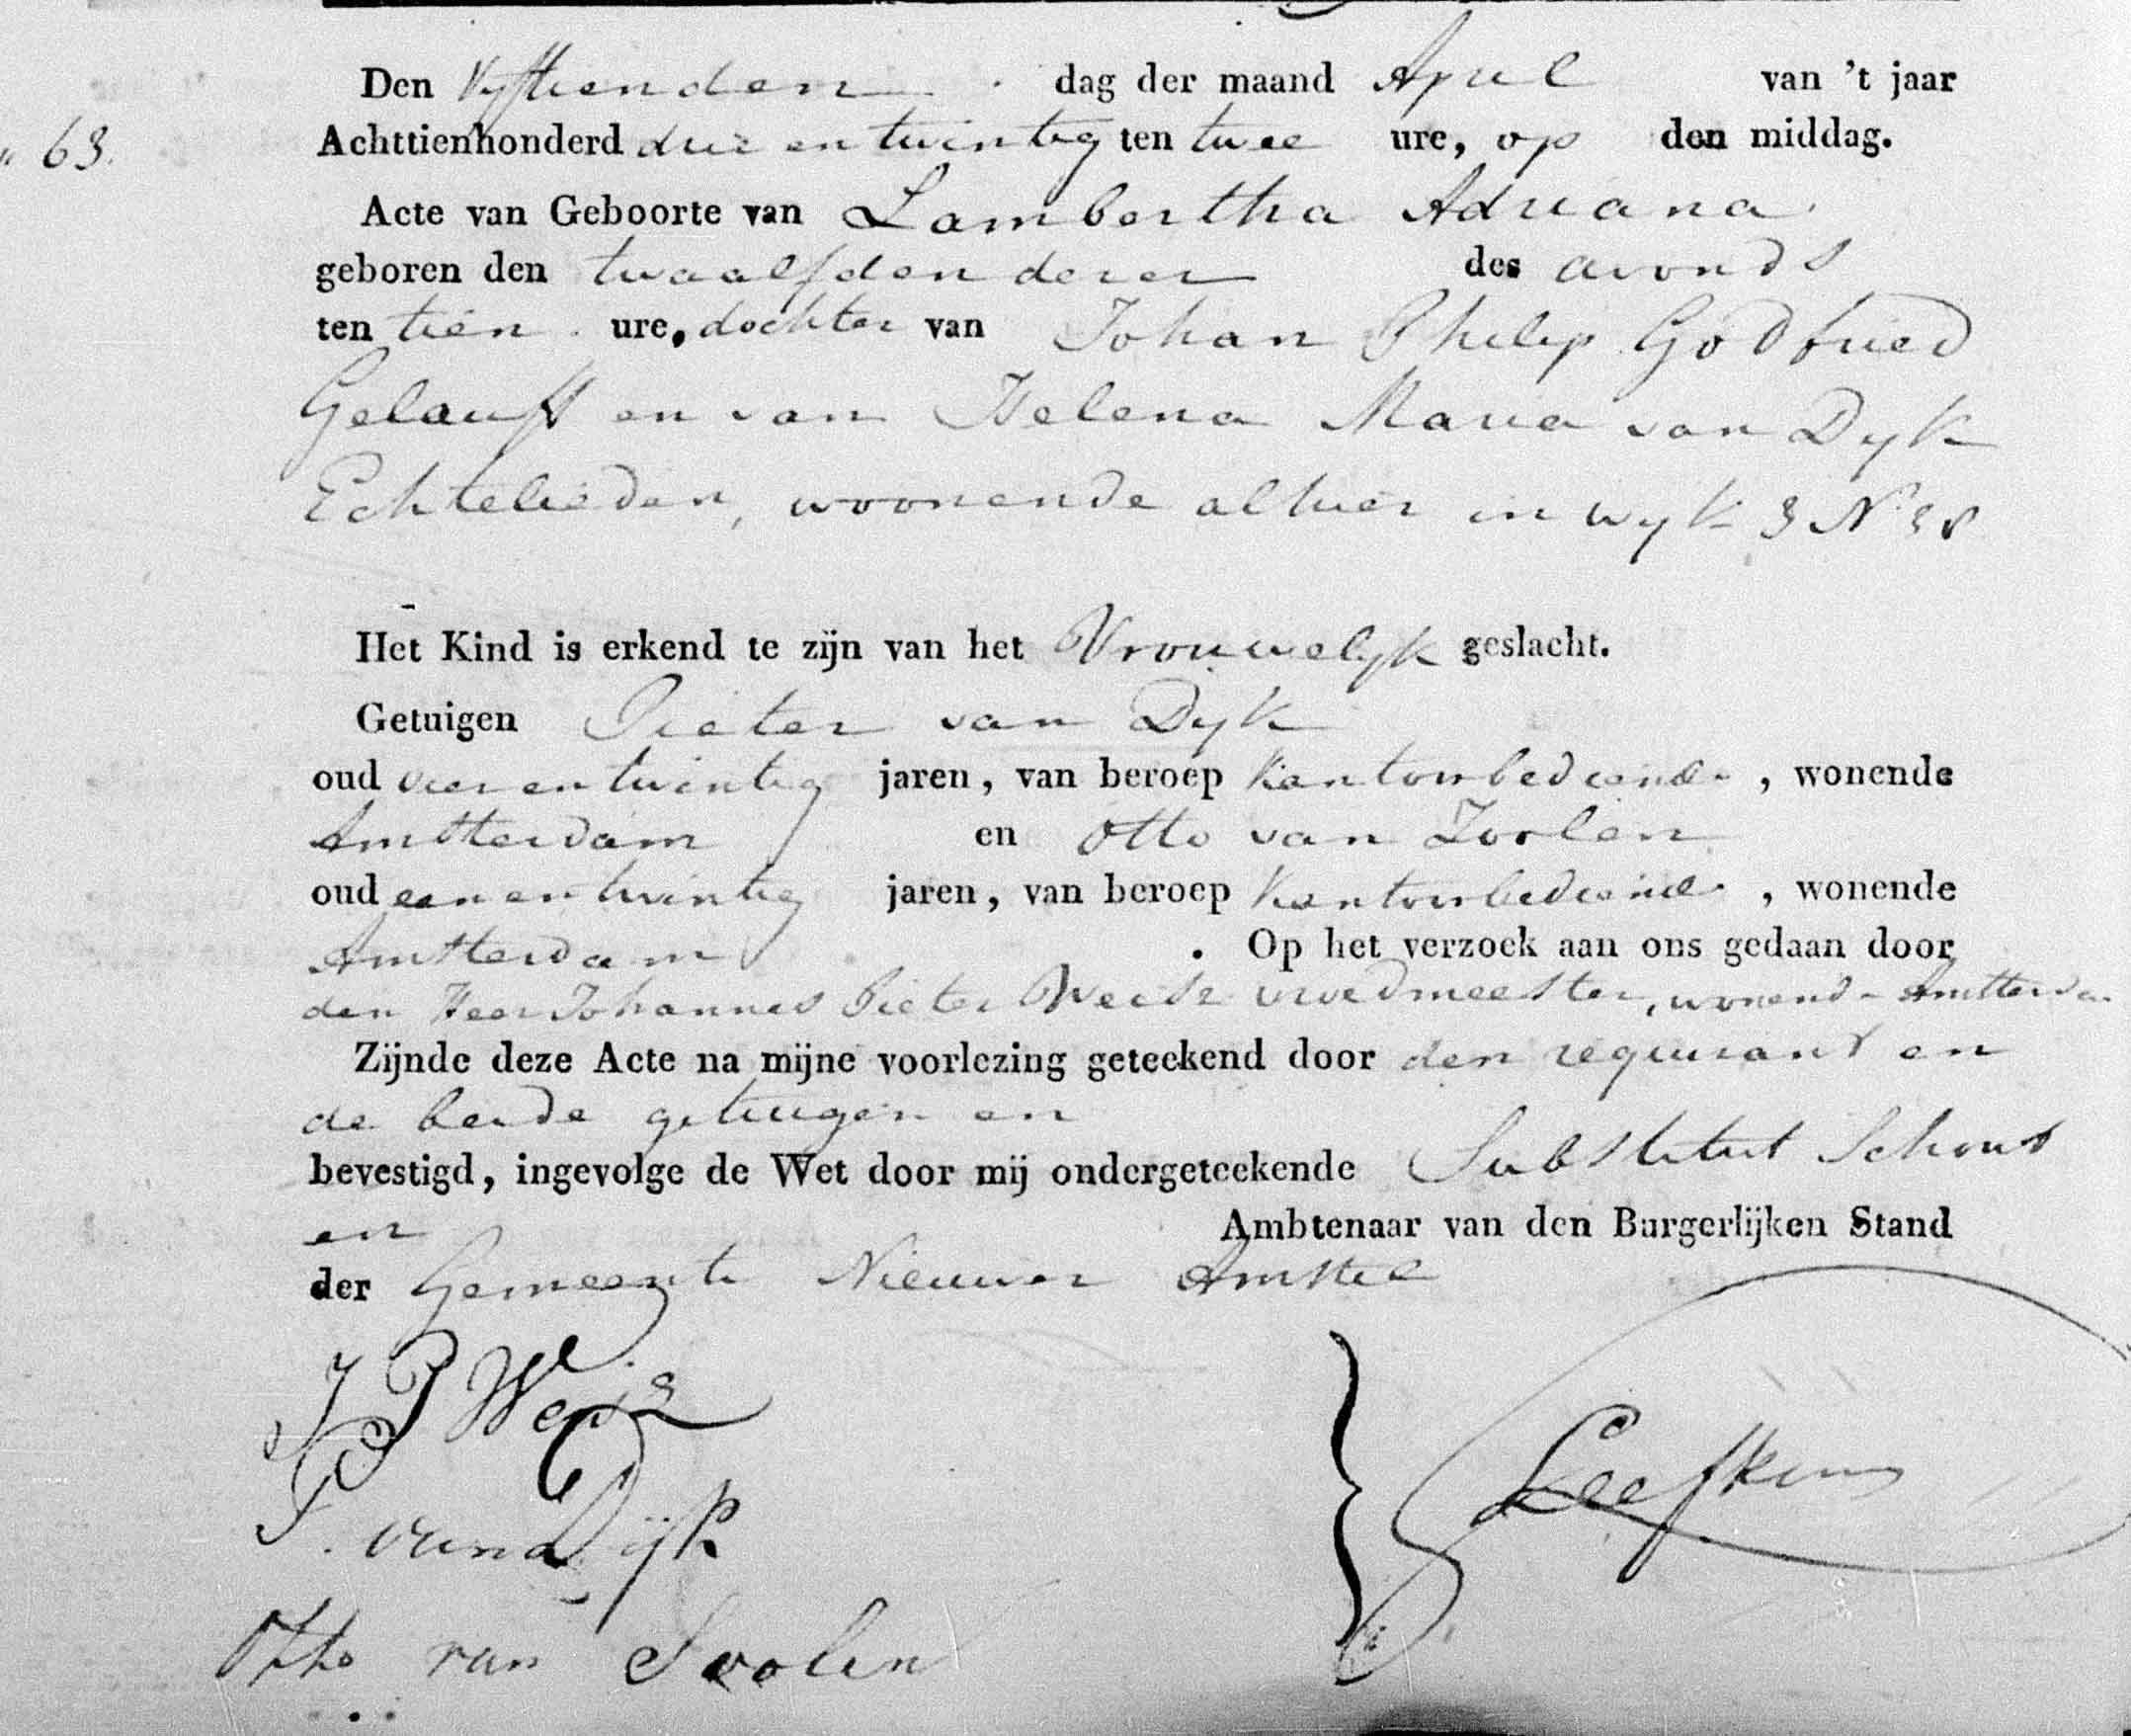 Den Vyftienden dag der maand April van 't jaar
63. Achttienhonderd drie en twintig ten twee ure, op den middag.
Acte van Geboorte van Lambertha Adriana
geboren den twaalfden dezer des avonds
ten tien ure, dochter van Johan Philip Godfried
Gelauff en van Helena Maria van Dyk
Echtelieden, woonende alhier in wyk 3 N. 38
Het Kind is erkend te zijn van het Vrouwelyk geslacht.
Getuigen Pieter van Dyk
oud vier en twintig jaren, van beroep Kantoorbediende, wonende
Amsterdam en Otto van Zoolen
oud een en twintig jaren, van beroep Kantoorbediende, wonende
Amsterdam . Op het verzoek aan ons gedaan door
den Heer Johannes Pieter vroedmeester, wonende Amsterdam
Zijnde deze Acte na mijne voorlezing geteekend door den requirant en
de beide getuigen en
bevestigd, ingevolge de Wet door mij ondergeteekende Substitut Schout
en Ambtenaar van den Burgerlijken Stand
der Gemeente Nieuwer Amstel
J P
P. van Dijk
Leefkens
Otto van Soolen